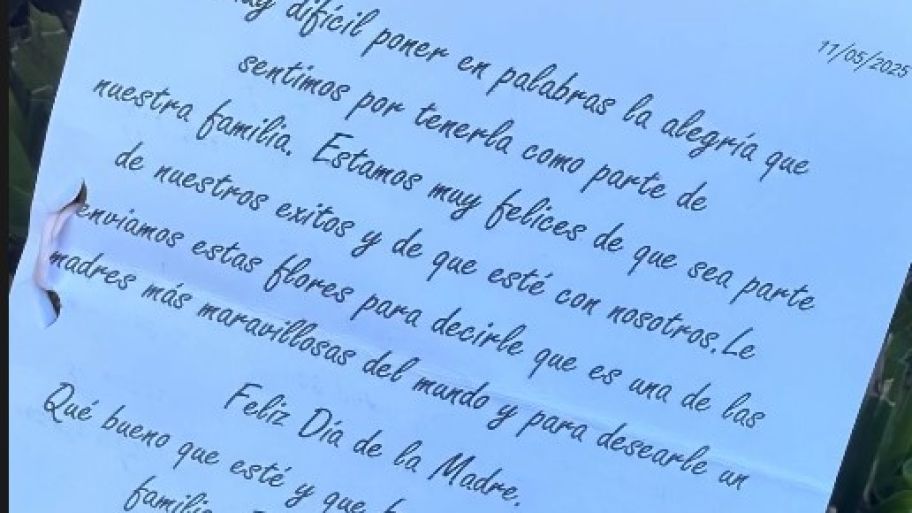 11/05/2025
difícil poner en palabras la alegría que
sentimos por tenerla como parte de
nuestra familia. Estamos muy felices de que sea parte
de nuestros exitos y de que esté con nosotros.Le
enviamos estas flores para decirle que es una de las
madres más maravillosas del mundo y para desearle un
Feliz Día de la Madre.
Qué bueno que esté y que